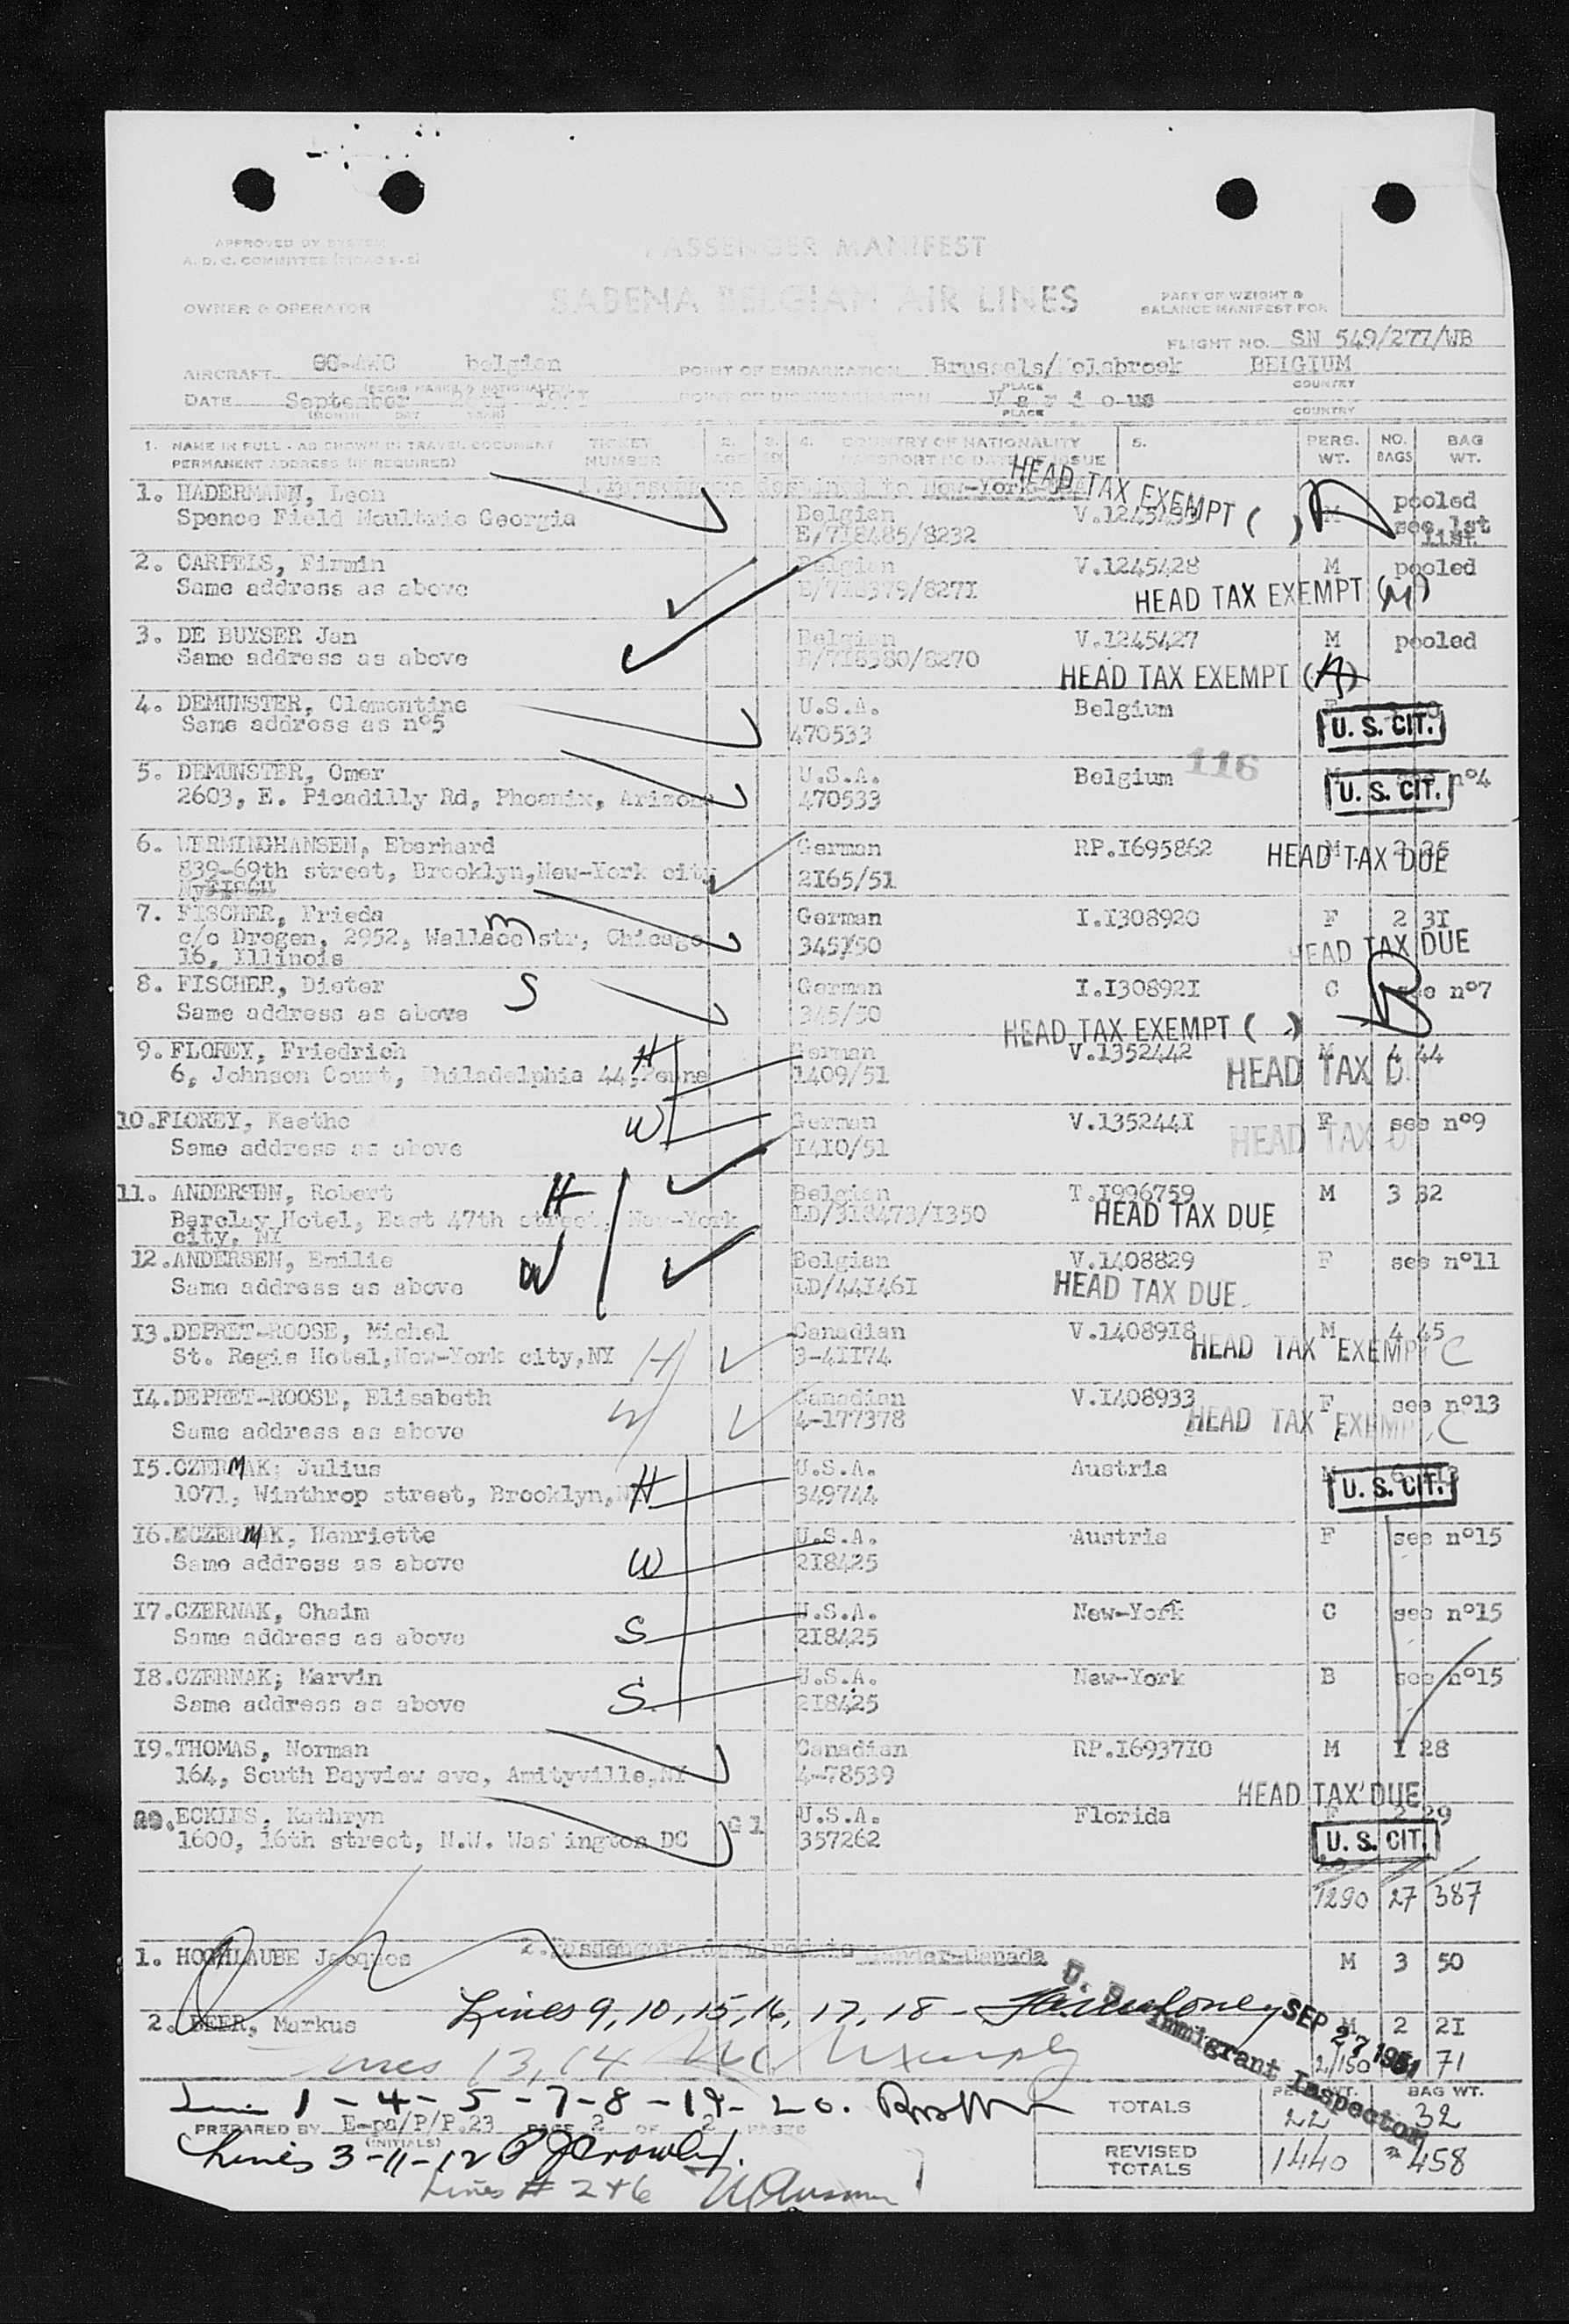 APPROVED BY SYSTEM
A. D. C. COMMITTEE
PASSENGER MANIFEST
OWNER & OPERATOR
SABENA BELGIAN AIR LINES
PART OF WEIGHT &
BALANCE MANIFEST FOR
FLIGHT NO. SN 549/277/WB
AIRCRAFT belgian POINT OF EMBARKATION Brussels/ BELGIUM
(REGIS MARKS & NATIONALITY) PLACE COUNTRY
DATE September 1951 POINT OF DISEMBARKATION V a r i o us
(MONTH DAY YEAR) PLACE COUNTRY
1. NAME IN FULL - AS SHOWN IN TRAVEL DOCUMENT TICKET 2. 3. 4. COUNTRY OF NATIONALITY 5. PERS. NO. BAG
PERMANENT ADDRESS (IF REQUIRED) NUMBER AGE SEX PASSPORT NO DATE OF ISSUE WT. BAGS WT.
1. Passengers destined to New-York
HEAD TAX EXEMPT ( )
1. HADERMANN, Leon Belgian M pooled
Spence Field Moultrie Georgia E/718485/8232 see 1st
list
2. CARPELS, Firmin Belgian V.1245428 M pooled
Same address as above E/718379/827I HEAD TAX EXEMPT (M)
3. DE BUYSER Jan Belgian V.1245427 M pooled
Same address as above E/718380/8270
HEAD TAX EXEMPT (A)
4. DEMUNSTER, Clementine U.S.A. Belgium
Same address as n°5 470533 U. S. CIT.
5. DEMUNSTER, Omer U.S.A. Belgium 116 M n°4
2603, E. Picadilly Rd, Phoenix, Arizona 470533 U. S. CIT.
6. WERMINGHANSEN, Eberhard German RP.I695862 M
839-69th street, Brooklyn,New-York city 2I65/51 HEAD TAX DUE
7. FISCHER, Frieda German I.I308920 F 2 3I
c/o Drogen, 2952, Wallace str, Chicago M 345/50 HEAD TAX DUE
16, Illinois
8. FISCHER, Dieter S German I.I30892I C see n°7
Same address as above 345/50
HEAD TAX EXEMPT ( )
9. FLOREY, Friedrich H German V.1352442 M 4 44
6, Johnson Court, Philadelphia 44,Penna 1409/51 HEAD TAX D
10.FLOREY, Kaethe W German V.135244I F see n°9
Same address as above I4I0/51 HEAD TAX D
11. ANDERSEN, Robert H Belgian T.I996759 M 3 32
Barclay Hotel, East 47th street, New-York LD/318473/I350 HEAD TAX DUE
city, NY
12.ANDERSEN, Emilie W Belgian V.1408829 F see n°11
Same address as above LD/44I46I HEAD TAX DUE
I3.DEPRET-ROOSE, Michel H Canadian V.I4089I8 M 4 45
St. Regis Hotel,New-York city,NY 3-4II74 HEAD TAX EXEMPT C
I4.DEPRET-ROOSE, Elisabeth W Canadian V.I408933 F see n°13
Same address as above 4-177378 HEAD TAX EXEMPT C
I5.CZERMAK; Julius H U.S.A. Austria M
1071, Winthrop street, Brooklyn,NY 349744 U. S. CIT.
I6. CZERMAK, Henriette W U.S.A. Austria F see n°15
Same address as above 2I8425
I7.CZERNAK, Chaim S U.S.A. New-York C see n°15
Same address as above 2I8425
I8.CZERNAK; Marvin S U.S.A. New-York B see n°15
Same address as above 2I8425
I9.THOMAS, Norman Canadian RP.I6937I0 M I 28
164, South Bayview ave, Amityville,NY 4-78539
HEAD TAX DUE
20.ECKLES, Kathryn G 1 U.S.A. Florida F 2 29
1600, 16th street, N.W. Washington DC 357262 U. S. CIT.
1290 27 387
2. Passengers destined to Gander-Canada
1. HOCHLAUBE Jacques M 3 50
2. BEER, Markus M 2 2I
Lines 9, 10, 15, 16, 17, 18 -
U. S. Immigrant Inspector
SEP 27 1951
2/150 71
Lines 13, 14
Line 1 - 4 - 5 - 7 - 8 - 19 - 20.
TOTALS PERS. WT. BAG WT.
22 32
PREPARED BY E-pa/P/P.23 PAGE 2 OF 2 PAGES
(INITIALS)
REVISED
TOTALS 1440 458
Lines 3-11-12 PJCrowley
Lines # 2+6